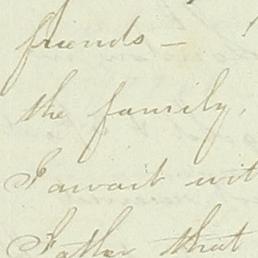 friends —
the family,
I await wit
Father that